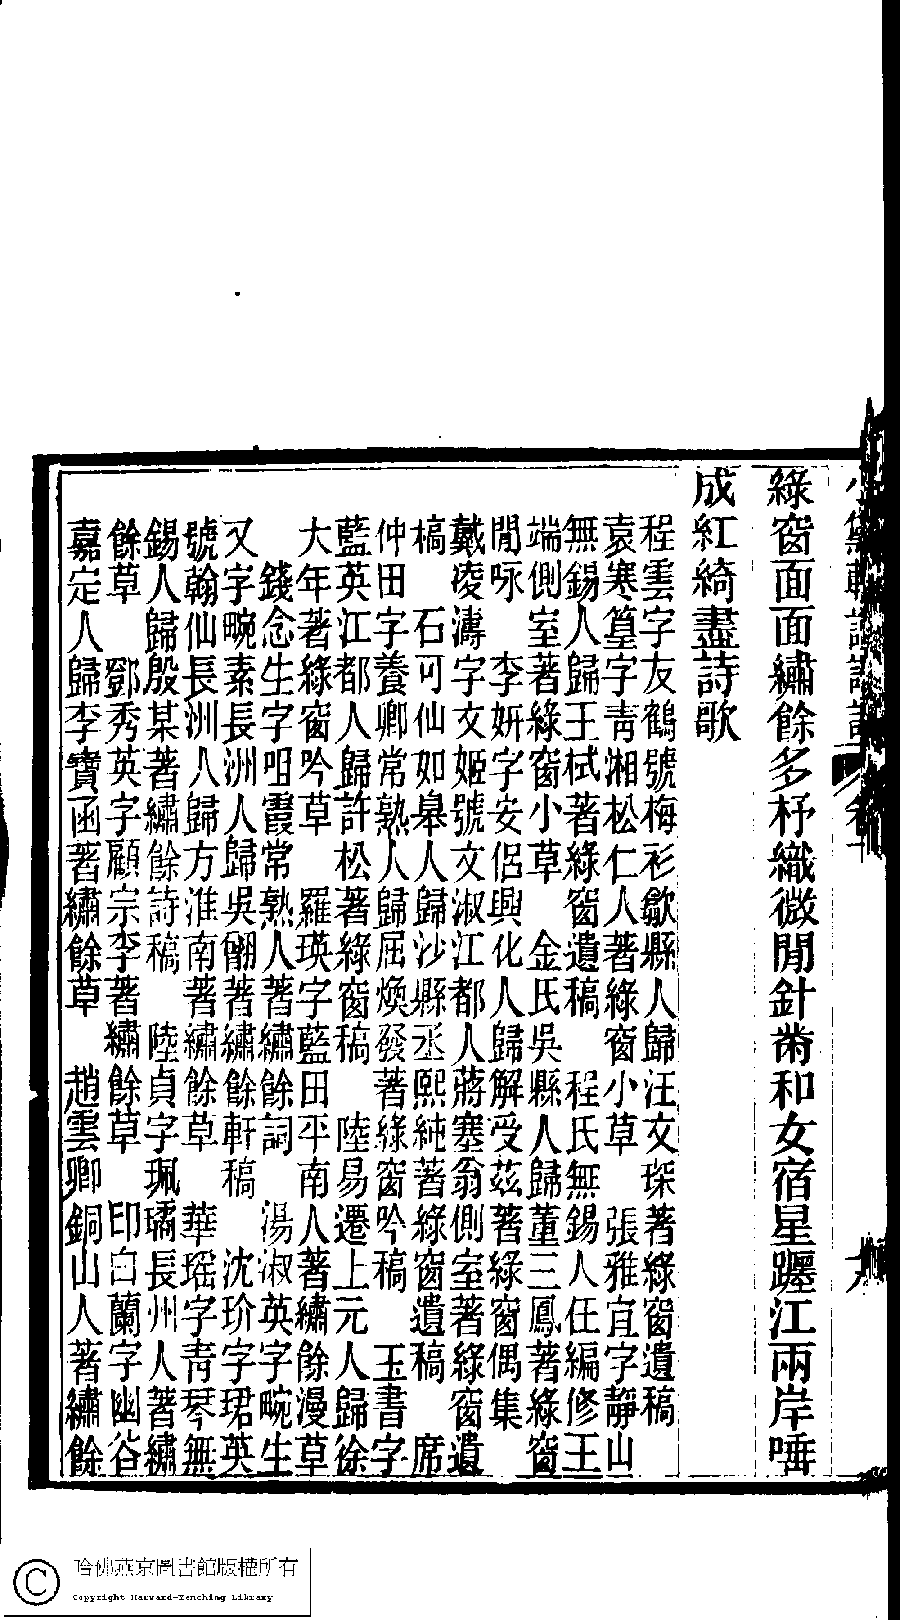 綠窗面面繡餘多杼織微閒針黹和女宿星躔江兩岸唾
成紅綺盡詩歌
程雲字友鶴號梅衫歙縣人歸汪文琛著綠窗遺稿
袁寒篁字靑湘松仁人著綠窗小草　張雅宜字靜山
無錫人歸王栻著綠窗遺稿　程氏無錫人任編修王
端側室著綠窗小草　金氏吳縣人歸董三鳳著綠窗
閒咏　李妍字安侶興化人歸解受茲著綠窗偶集
戴凌濤字文姬號文淑江都人蔣塞翁側室著綠窗遺
槁　石可仙如皋人歸沙縣丞熙純著綠窗遺稿　席
仲田字養卿常熟人歸屈煥發著綠窗吟稿　玉書字
藍英江都人歸許松著綠窗稿　陸易遷上元人歸徐
大年著綠窗吟草　羅瑛字藍田平南人著繡餘漫草
錢念生字咀霞常熟人著繡餘詞　湯淑英字畹生
又字畹素長洲人歸吳翩著繡餘軒稿　沈玠字珺英
號翰仙長洲人歸方淮南著繡餘草　華瑶字靑琴無
錫人歸殷某著繡餘詩稿　陸貞字珮璚長州人著繡
餘草　鄧秀英字顧宗李著繡餘草　印白蘭字幽谷
嘉定人歸李寶函著繡餘草　趙雲卿銅山人著繡餘
哈佛燕京圖書館版權所有
Copyright Harvard-Yenching Library